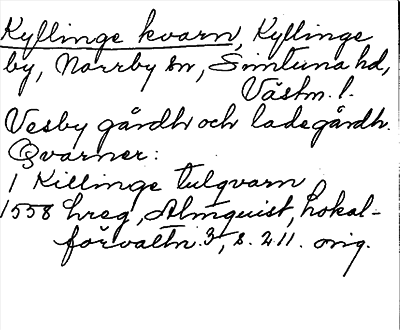 Kyllinge kvarn, Kyllinge
by, Norrby sn, Simtuna hd,
Västm. l.
Vesby gårdh och ladegårdh.
Qvarner:
1 Killinge tulqvarn
1558 hreg, Almquist, Lokal-
förvaltn. 3, s. 211. orig.